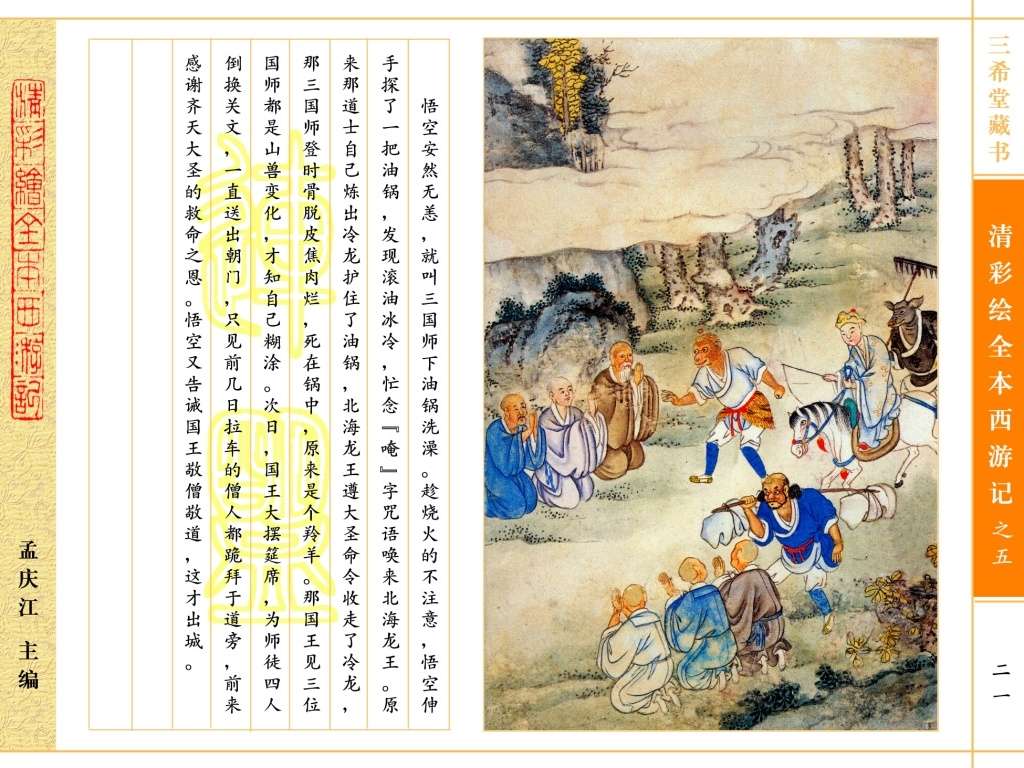 三希堂藏书
清彩绘全本西游记之五
二一
悟空安然无恙，就叫三国师下油锅洗澡。趁烧火的不注意，悟空伸
手探了一把油锅，发现滚油冰冷，忙念『唵』字咒语唤来北海龙王。原
来那道士自己炼出冷龙护住了油锅，北海龙王遵大圣命令收走了冷龙，
那三国师登时骨脱皮焦肉烂，死在锅中，原来是个羚羊。那国王见三位
国师都是山兽变化，才知自己糊涂。次日，国王大摆筵席，为师徒四人
倒换关文，一直送出朝门，只见前几日拉车的僧人都跪拜于道旁，前来
感谢齐天大圣的救命之恩。悟空又告诫国王敬僧敬道，这才出城。
精彩繪全本西游記
孟庆江 主编